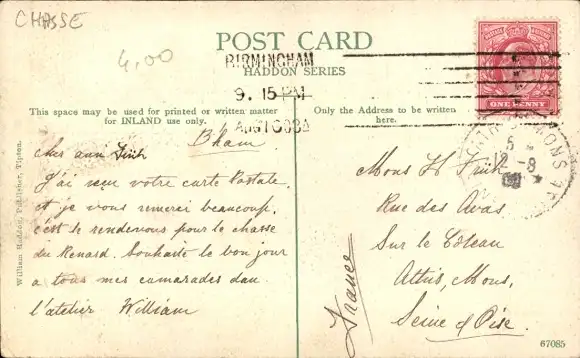 CHASSE
4,00
POST CARD
HADDON SERIES
BIRMINGHAM
9. 15 PM
AUG 10 08
This space may be used for printed or written matter
for INLAND use only.
Only the Address to be written
here.
William Haddon, Publisher, Tipton.
B'ham
cher ami
J'ai reçu votre carte Postale
et je vous remerci beaucoup.
c'est le rendevous pour le chasse
du Renard. Souhaite le bon jour
a tous mes camarades dan
l'atelier William
POSTAGE REVENUE
ONE PENNY
5
12-8
08
Mons H
Rue des
Sur le Côteau
Athis, Mons,
Seine & Oise.
France
67085